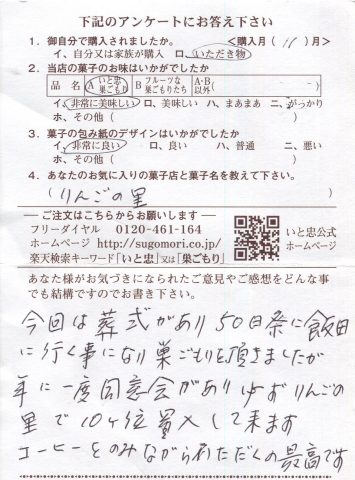 下記のアンケートにお答え下さい
1. 御自分で購入されましたか。 <購入月(11)月>
イ、自分又は家族が購入 ロ、いただき物
2. 当店の菓子のお味はいかがでしたか
品名 A いと忠巣ごもり B フルーツな巣ごもりたち A・B以外( )
イ、非常に美味しい ロ、美味しい ハ、まあまあ ニ、がっかり
ホ、その他( )
3. 菓子の包み紙のデザインはいかがでしたか
イ、非常に良い ロ、良い ハ、普通 ニ、悪い
ホ、その他( )
4. あなたのお気に入りの菓子店と菓子名を教えて下さい。
(りんごの里 )
ご注文はこちらからお願いします
フリーダイヤル 0120-461-164
ホームページ http://sugomori.co.jp/
楽天検索キーワード「いと忠」又は「巣ごもり」
いと忠公式
ホームページ
あなた様がお気づきになられたご意見やご感想をどんな事
でも結構ですのでお書き下さい。
今回は葬式があり50日祭に飯田
に行く事になり巣ごもりを頂きましたが
年に一度同窓会がありゆずりんごの
里で10ヶ位買入して来ます
コーヒーとのみながらいただくの最高です